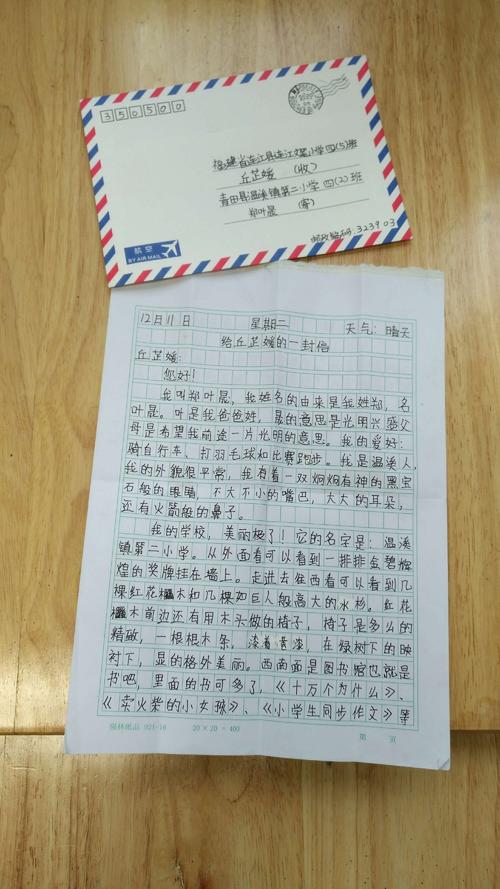 350500
福建省连江县连江文笔小学四(5)班
丘芷媛 (收)
青田县温溪镇第二小学四(2)班
郑叶晟 (寄)
邮政编码:323903
航空
BY AIR MAIL
12月11日 星期二 天气:晴天
给丘芷媛的一封信
丘芷媛:
您好!
我叫郑叶晟,我姓名的由来是我姓郑,名
叶晟。叶是我爸爸姓,晟的意思是光明兴盛父
母是希望我前途一片光明的意思。我的爱好:
骑自行车、打羽毛球和比赛跑步。我是温溪人,
我的外貌很平常,我有着一双炯炯有神的黑宝
石般的眼睛,不大不小的嘴巴,大大的耳朵,
还有火箭般的鼻子。
我的学校,美丽极了!它的名字是:温溪
镇第二小学。从外面看可以看到一排排金碧辉
煌的奖牌挂在墙上。走进去往西看可以看到几
棵红花檵木和几棵如巨人般高大的水杉。红花
檵木前边还有用木头做的椅子,椅子是多么的
精致,一根根木条,漆着黄漆,在绿树下的映
衬下,显的格外美丽。西南面是图书馆也就是
书吧,里面的书可多了,《十万个为什么》、
《卖火柴的小女孩》、《小学生同步作文》等
强林纸品 921-16 20×20=400 第 页